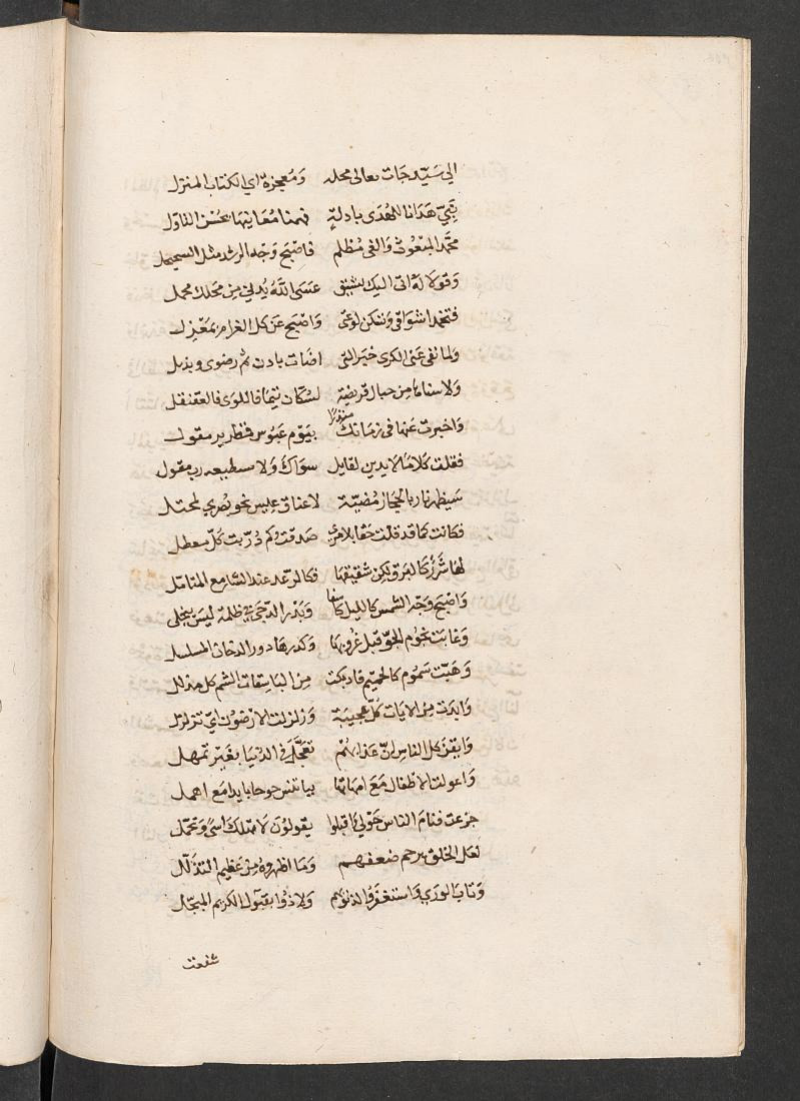 الي سَيّد جات تعالى محله وَمُعجزة اي الكتاب المنزل
نَبِيّ هَدانا للهُدَى بادلةٍ فهمنا مَعَانِيها بحُسْن التاوّل
محَمّد المبعُوث وَالغي مُظلم فاصْبَح وَجْه الرشد مثل السجنجل
وَقولا لهُ اني اليك لشيق عَسَى اللهُ يُدني مِن محلك محمل
فتخمد اشوَاقي وَتسكن لوعَتي وَاصْبح عَن كل الغرام بمَعْزل
وَلما نفى عَني الكرى خبر التي اضَات باذن ثم رضوى ويذبل
وَلا سناها مِن جبال قريضة لسُكّان تيمَا فاللوَى فالعقنقل
وَاخبرت عَنها في زمَانك منذرًا بيَوْم عَبُوس قمطرير مطول
فقلت كلامًا لا يدين لقايل سوَاكَ وَلا سطيعه رب مقول
سَيظهر نار بالحِجَاز مُضيئة لاعناق عيس نحو بُصرى لمجتل
فكانت كما قد قلت حَقّا بلا مرى صَدقت وكم كذّبت كلّ معطل
لها شَرَرٌ كالبَرق لكِن شهيقها فكالرّعد عند السَّامع المتامل
وَاصْبح وَجْه الشمس كالليل كاسفا وَبَدْر الدّجَى في ظلمة ليسَ ينجلي
وَغابَت نجُوم الجوّ قبل غروبها وَكدرهَا دور الدخان المسلسل
وَهَبّت سَمُوم كالحميّم فاذبلت مِن البَاسِقات الشم كل مذلل
وَابدَت مِن الايَات كلّ عجيبَة وَزلزلت الارضون ايّ تزلزل
وَايقن كل الناس انّ عَذابهُم تعَجَّل في الدّنيَا بغَيْر تمهل
وَاعولت الاطفال مَعَ امهَاتهَا
جزعت فقامَ الناس حَوْلي واقبلوا يقولوُن لا تهلك اسًى وَتحمّل
لعَل الخلق يرحم ضعفهم وَمَا اظهروهُ مِن عَظيم التذلّل
وَتابَ الورى وَاستغفرُوا لذنوبهم وَلاذُوا بقبول الكريم المبَجّل
شفعت